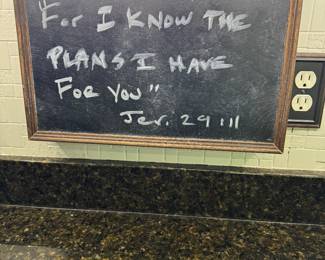 For I KNOW THE
PLANS I HAVE
FOR YOU"
Jer. 29:11